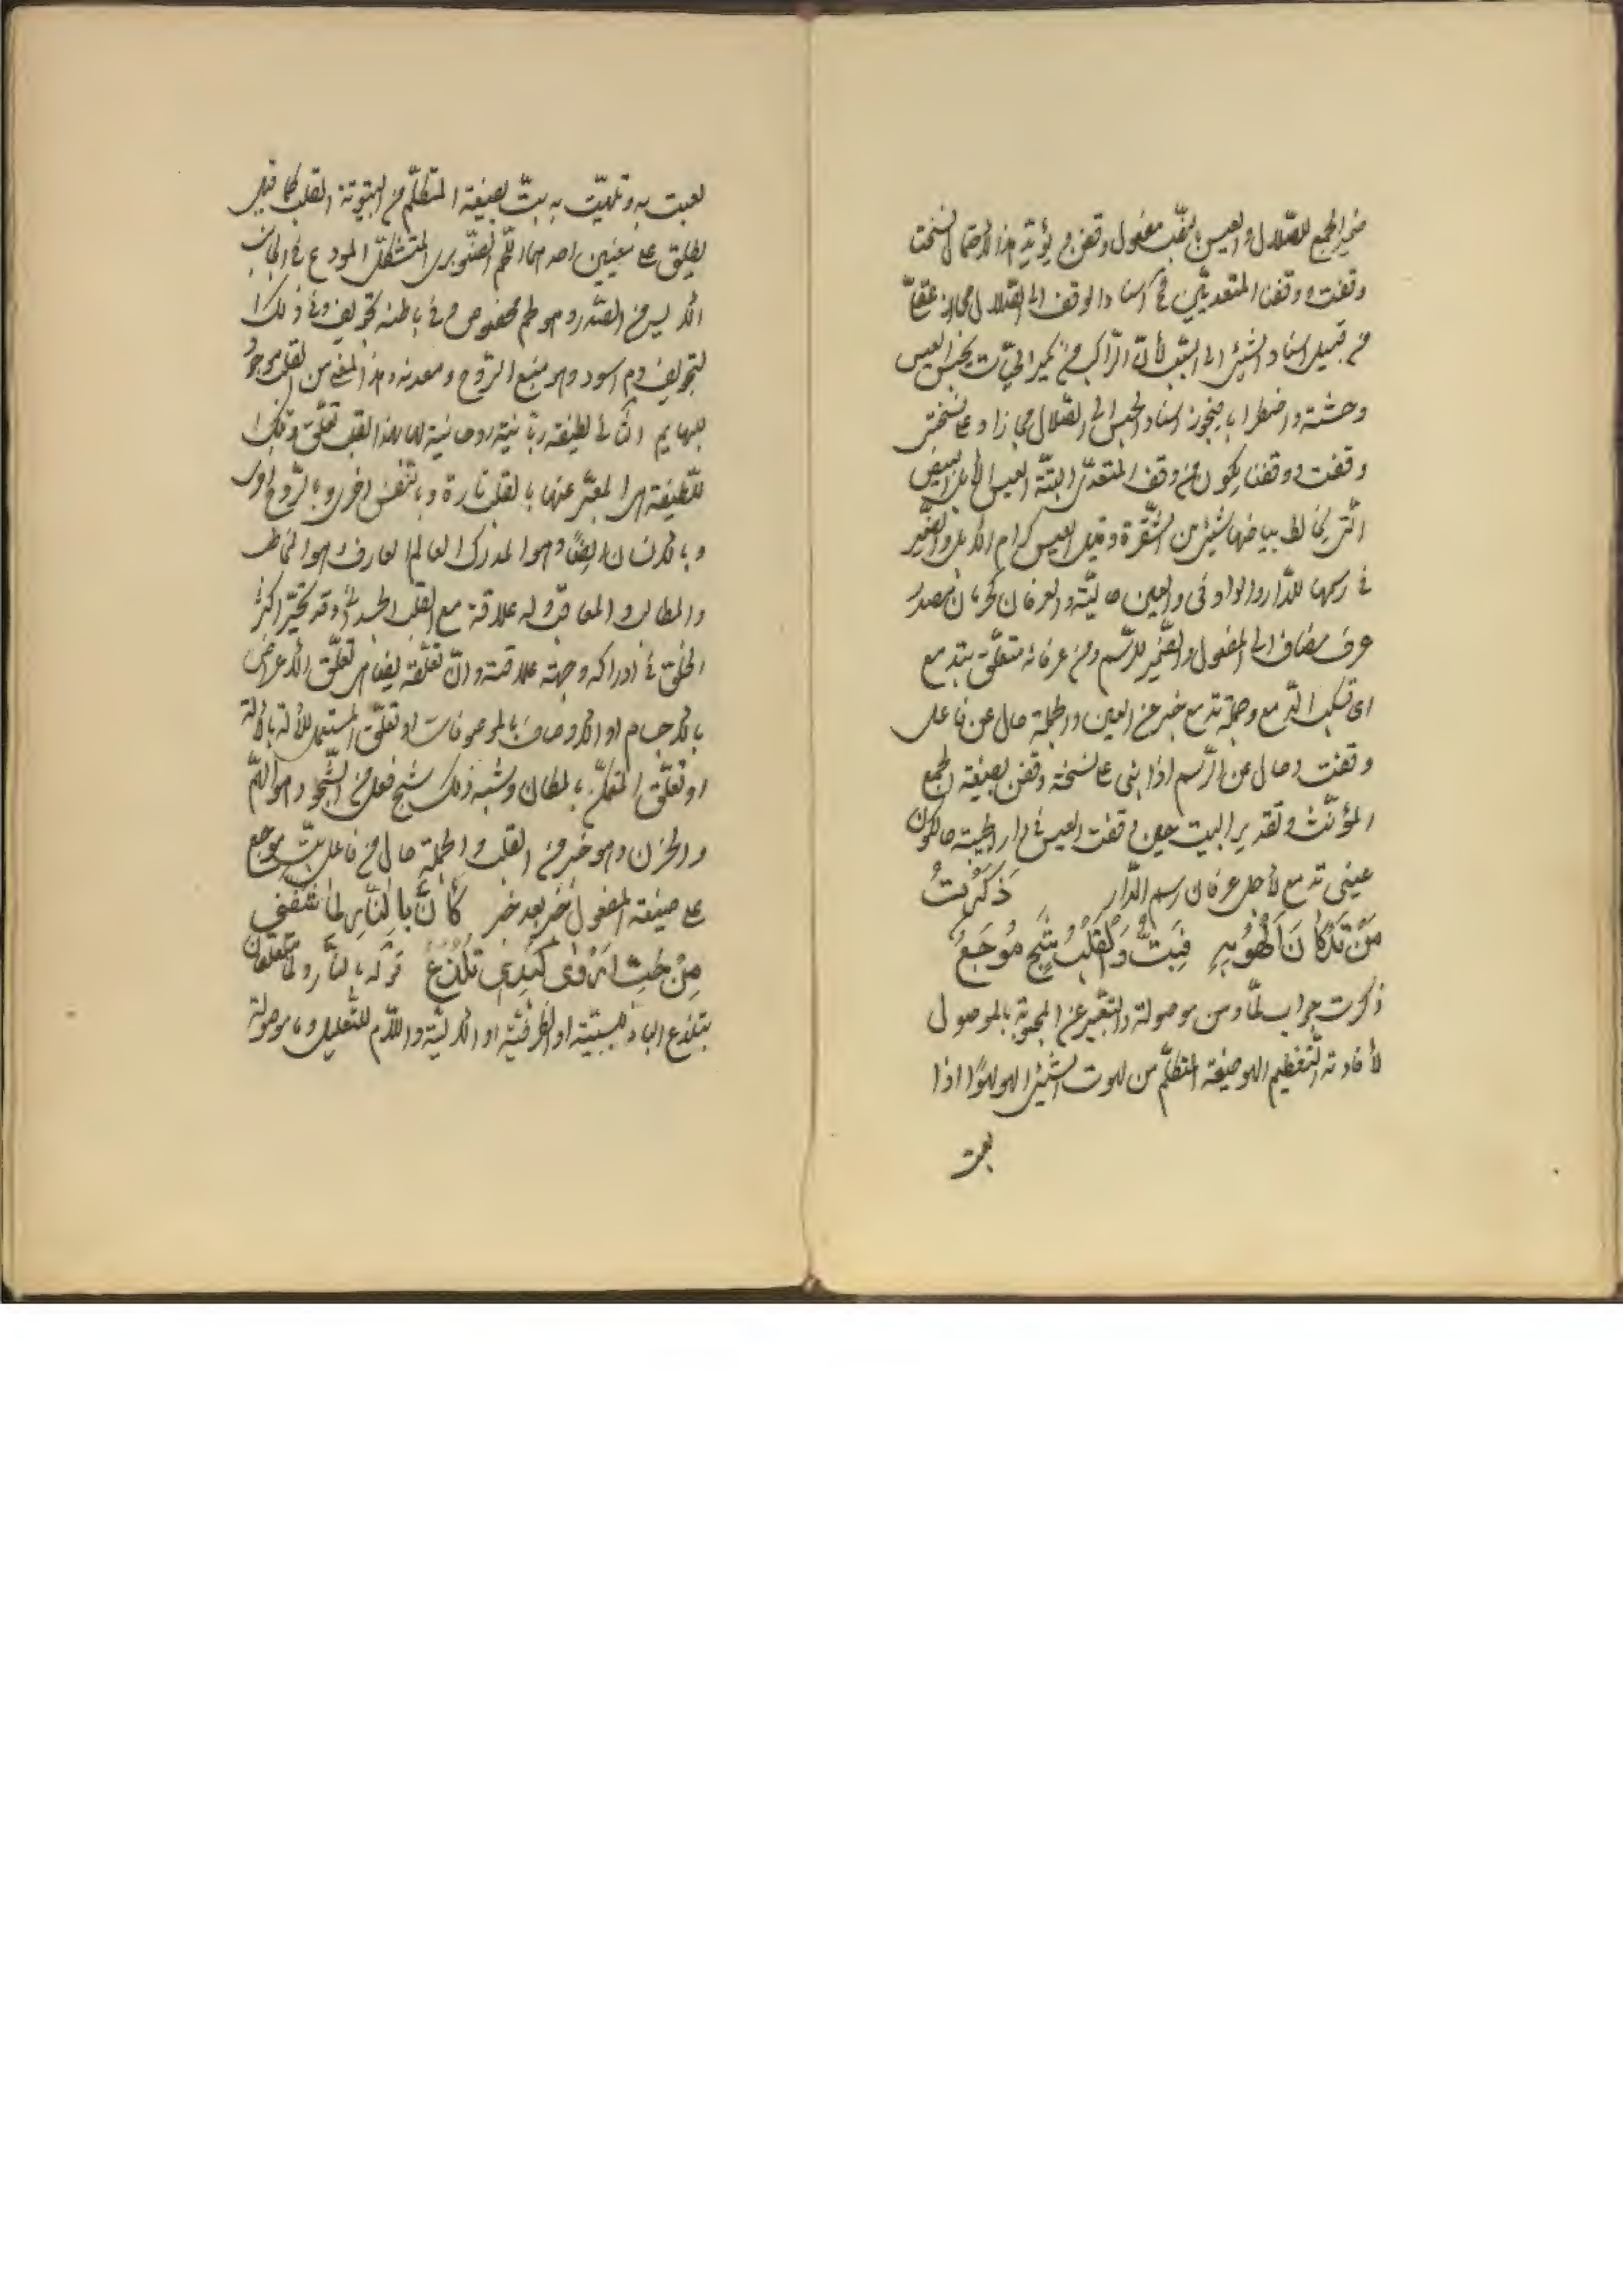 ضمير الجمع للضلال والعيس بالنصب مفعول وقفن ويؤيد هذا الاحتمال نسختا
وقفت ووقفنا المتعديين في اسناد الوقف الى الضلال مجاز عقلي
من قبيل اسناد الشيئ الى السبب لأنّ الراكب من يحبس العيس
وحشة واضطرابا فيجوز اسناد الحبس الى الضلال مجازا وعلى نسختى
وقفت ووقفنا يكون من وقف المتعدّى البتّة العيس الأبل البيض
الّتى يخالط بياضها شيئ من الشقرة وقيل العيس كرام الأبل والضمير
فى رسمها للدّار والواو فى والعين حاليّة والعرفان مصدر
عرف مضاف الى المفعول والضّمير للرّسم ومن عرفانه متعلّق بتدمع
اى تسكب الدّمع وجملة تدمع خبر عن العين والجملة حال عن فاعل
وقفت وحال عن الرّسم اذا بنى على نسخة وقفن بصيغة الجمع
المؤنّث وتقدير البيت حين وقفت العيس فى دار الحبيبة حالكون
عينى تدمع لأجل عرفان رسم الدّار ذَكَرْتُ
مَنْ قَدْ كَانَ اَلْهُو بِهِ فَبِتُّ وَالْقَلْبُ شَجٍ مُوجَعُ
ذكرت جواب لمّا ومن موصولة والتعبير عن المحبوبة بالموصول
لأفادته التّعظيم الهو صيغة المتكلّم من لهوت الشيئ الهو لهوًا اذا
لعبت
لعبت به وتلهيّت به بتّ بصيغة المتكلّم من البيتوتة القلب كما قيل
يطلق على معنيين احدهما اللّحم الصّنوبرى المتشكّل المودع فى الجانب
الأيسر من الصّدر وهو لحم مخصوص وفى باطنه تجويف وفى ذلك
التجويف دم اسود وهو منبع الرّوح ومعدنه وهذا المعنى من القلب موجود
للبهايم الثّانى لطيفة ربّانيّة روحانيّة لها بهذا القلب تعلّق وتلك
اللّطيفة هى المعبّر عنها بالقلب تارة وبالنّفس اخرى وبالرّوح اخرى
وبالانسان ايضًا وهو المدرك العالم العارف وهو المخاطب
والمطالب والمعاقب وله علاقة مع القلب الجسدانى وقد تحيّر اكثر
الخلق فى ادراكه وجهة علاقته وانّ تعلّقه يضاهى تعلّق الأعراض
بالاجسام او الأوصاف بالموصوفات او تعلّق المستعمل للآلة بالآلة
او تعلّق المتمكّن بالمكان وشبه ذلك شج فعل من الشّجو وهو الهمّ
والحزن وهو خبر من القلب والجملة حال من فاعل بتّ موجع
على صيغة المفعول خبر بعد خبر كَاَنَّ بِالنَّارِ لِمَا شَفَّنِى
مِنْ حُبِّ اَرْوٰى كَبِدِى تَلْذَعُ قوله بالنّار ولما متعلّقان
بتلذع الباء للسببيّة او الظرفيّة او الآليّة واللّام للتّعليل وما موصولة